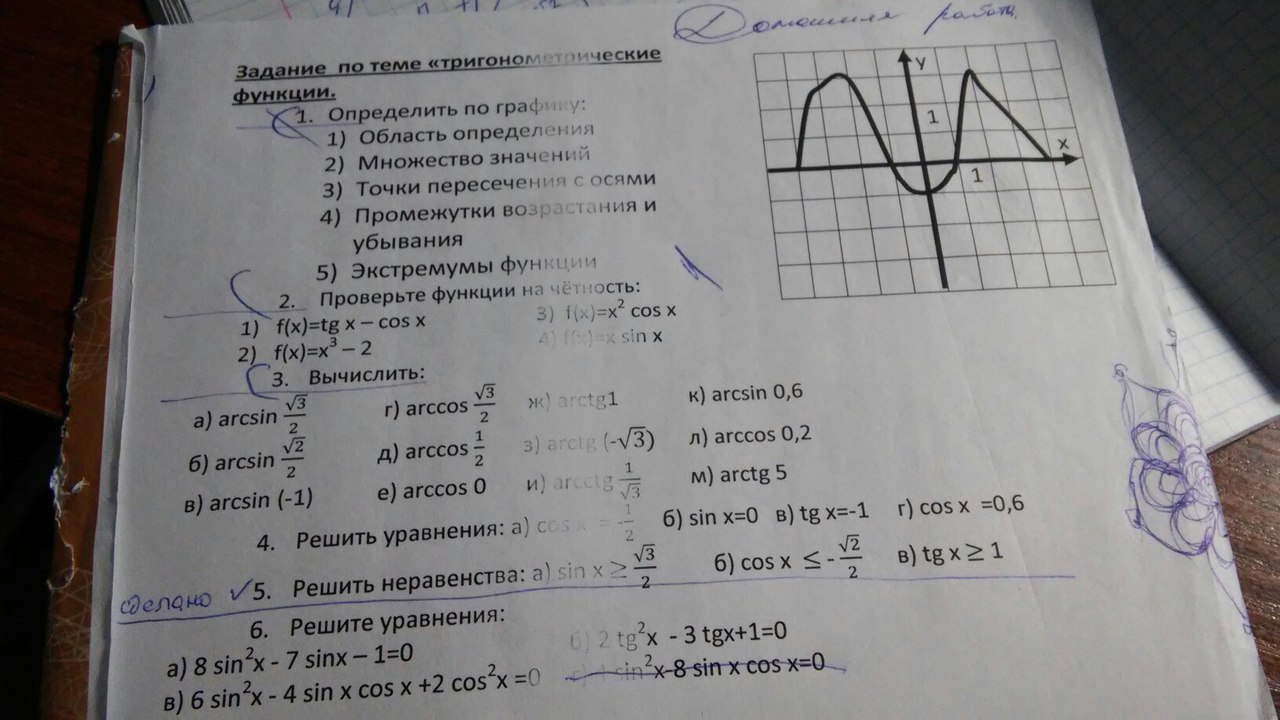 Домашняя работа.
Задание по теме «тригонометрические
функции.
1. Определить по графику:
1) Область определения
2) Множество значений
3) Точки пересечения с осями
4) Промежутки возрастания и
убывания
5) Экстремумы функции
y
1
x
1
2. Проверьте функции на чётность:
1) f(x)=tg x – cos x 3) f(x)=x² cos x
2) f(x)=x³ – 2 4) f(x)=x sin x
3. Вычислить:
а) arcsin √3/2 г) arccos √3/2 ж) arctg1 к) arcsin 0,6
б) arcsin √2/2 д) arccos 1/2 з) arctg (-√3) л) arccos 0,2
в) arcsin (-1) е) arccos 0 и) arcctg 1/√3 м) arctg 5
4. Решить уравнения: а) cos x = -1/2 б) sin x=0 в) tg x=-1 г) cos x =0,6
сделано 5. Решить неравенства: а) sin x ≥ √3/2 б) cos x ≤ -√2/2 в) tg x ≥ 1
6. Решите уравнения:
а) 8 sin²x - 7 sinx – 1=0 б) 2 tg²x - 3 tgx+1=0
в) 6 sin²x - 4 sin x cos x +2 cos²x =0 4 sin²x-8 sin x cos x=0